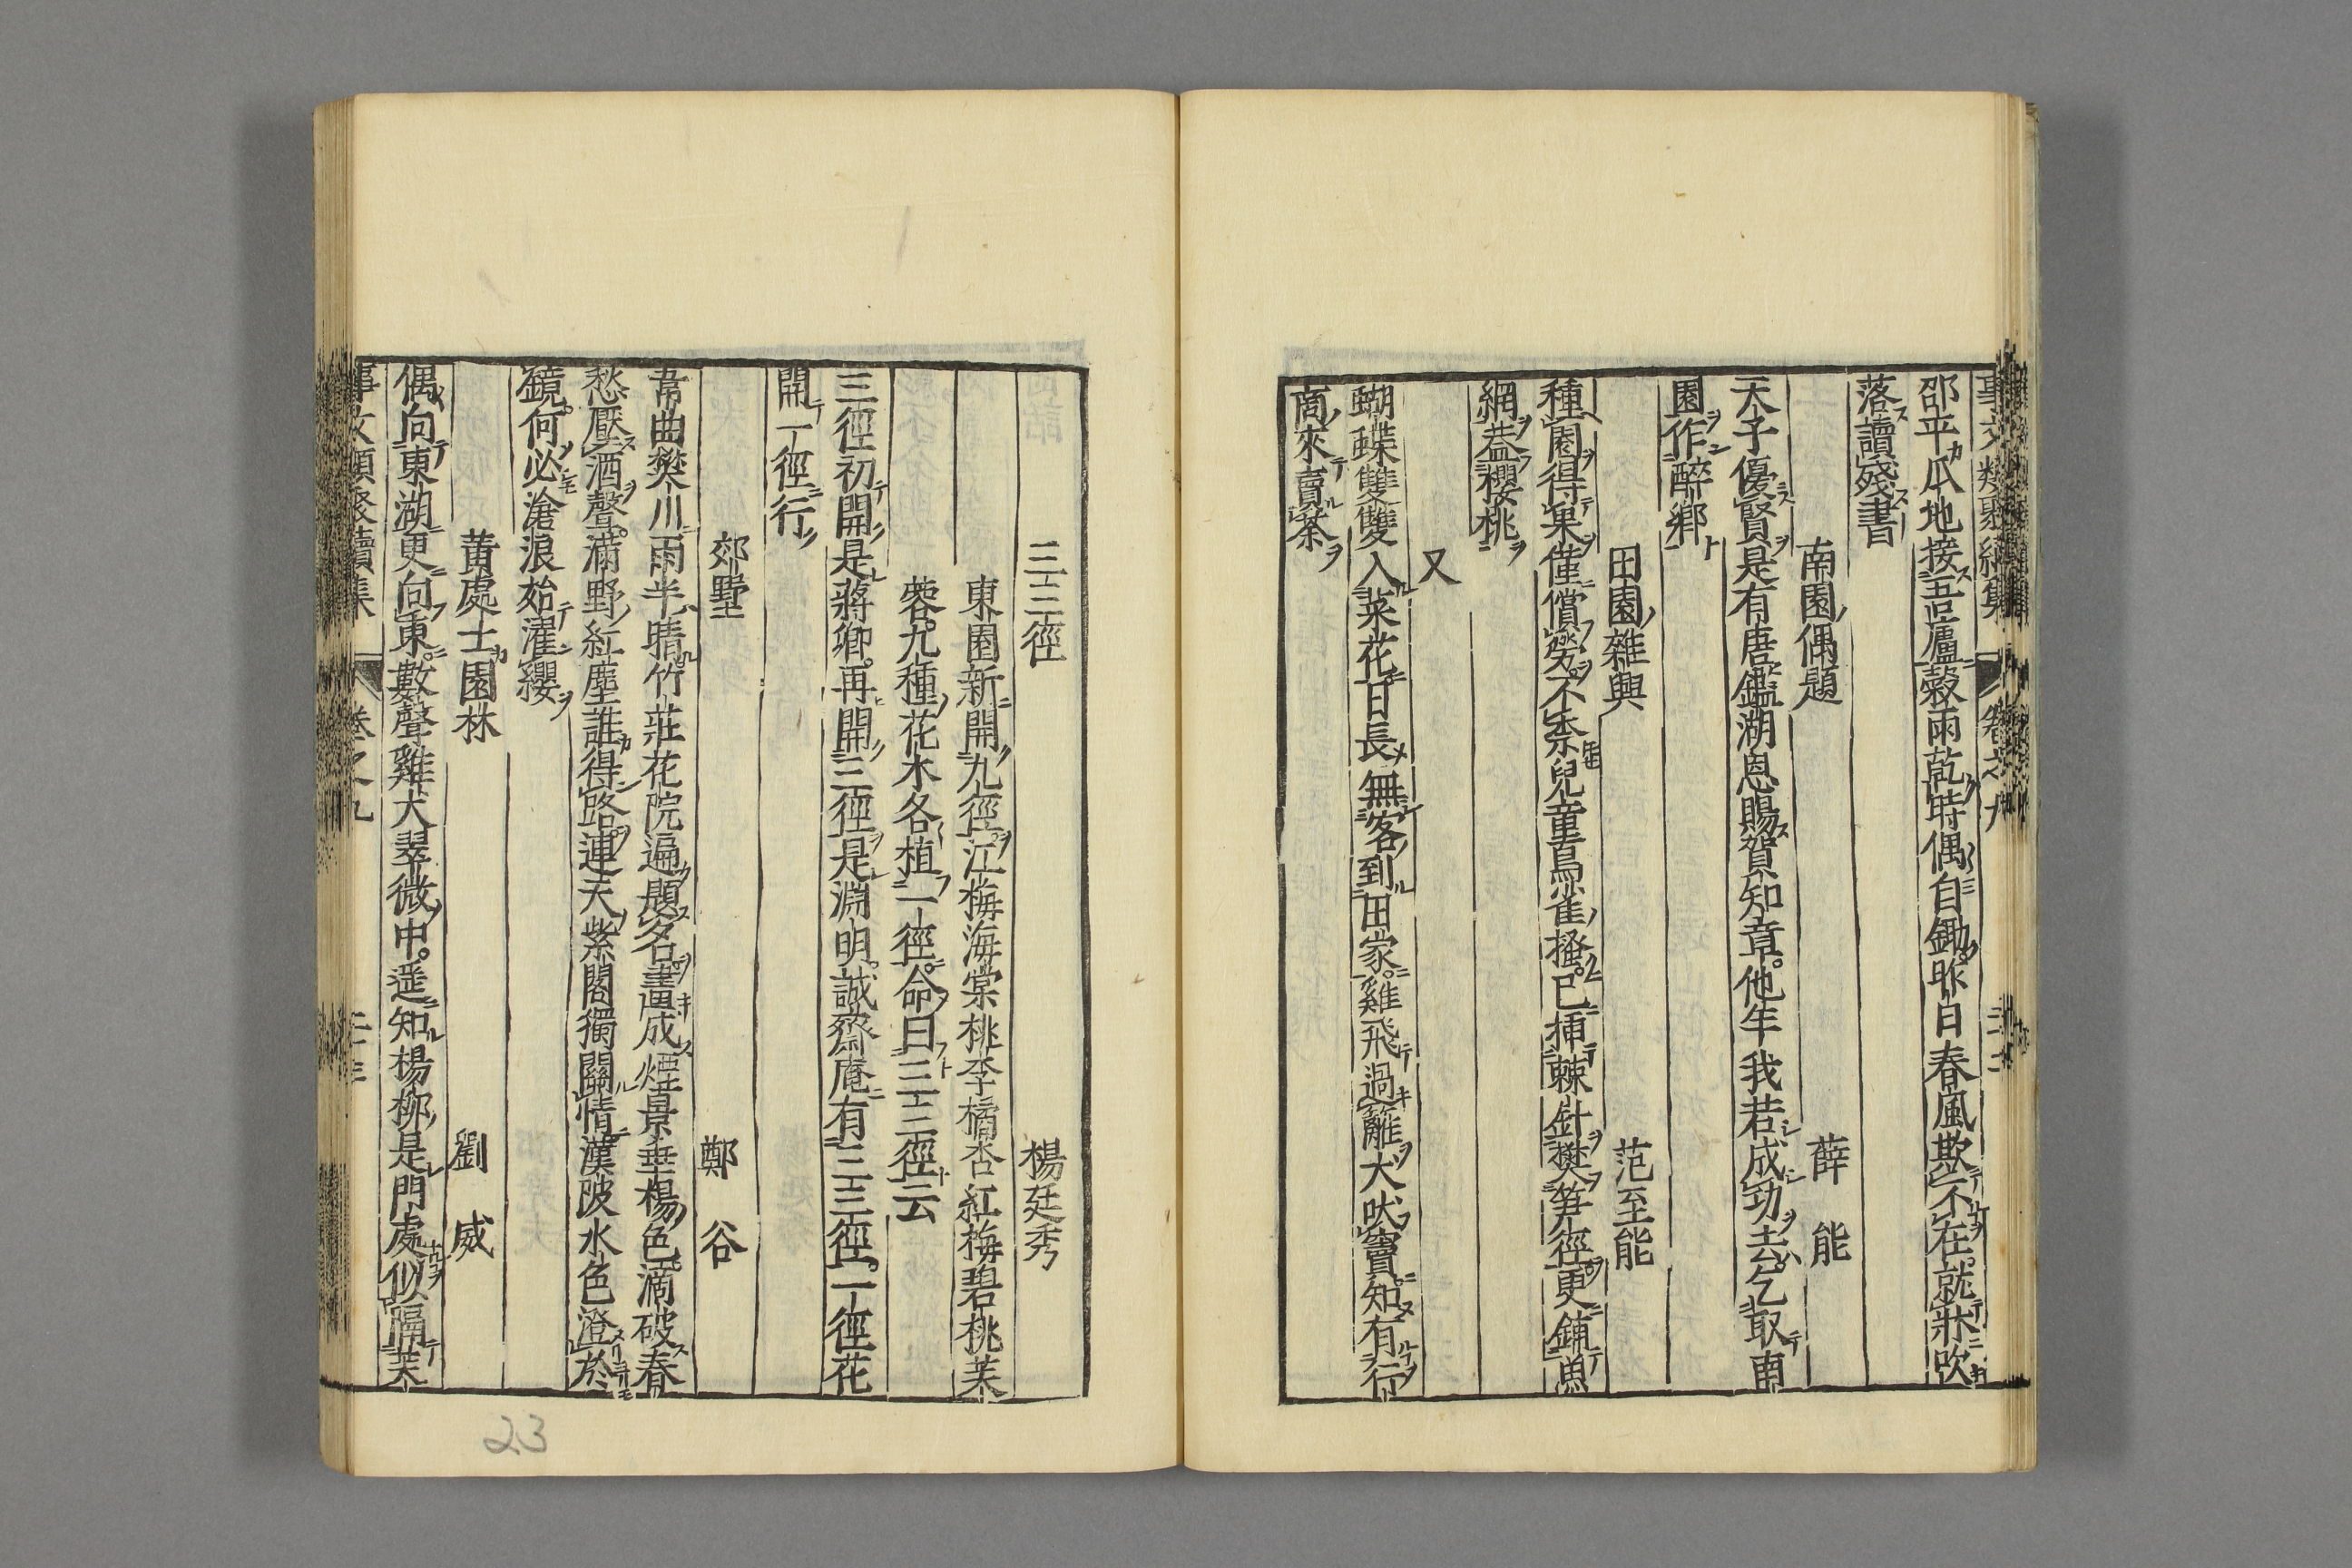 事文類聚續集 卷之九 二十二
邵平瓜地接吾廬穀雨乾時偶自鋤昨日春風欺不在就牀吹
落讀殘書
南園偶題 薛能
天子優賢是有唐鑑湖恩賜賀知章他年我若成功去乞取南
園作醉鄉
田園雜興 范至能
種園得果僅償勞不柰兒童鳥雀搔已揷棘針樊笋徑更鋪魚
網蓋櫻桃
又
蝴蝶雙雙入菜花日長無客到田家雞飛過籬犬吠竇知有行
商來賣茶
三三徑 楊廷秀
東園新開九徑江梅海棠桃李橘杏紅梅碧桃芙
蓉九種花木各植一徑命曰三三徑云
三徑初開是蔣卿再開三徑是淵明誠齋庵有三三徑一徑花
開一徑行
郊墅 鄭谷
韋曲樊川雨半晴竹莊花院遍題名畫成煙景垂楊色滴破春
愁壓酒聲滿野紅塵誰得路連天紫閣獨關情渼陂水色澄於
鏡何必滄浪始濯纓
黃處士園林 劉威
偶向東湖更向東數聲雞犬翠微中遥知楊柳是門處似隔芙
事文類聚續集 卷之九
23